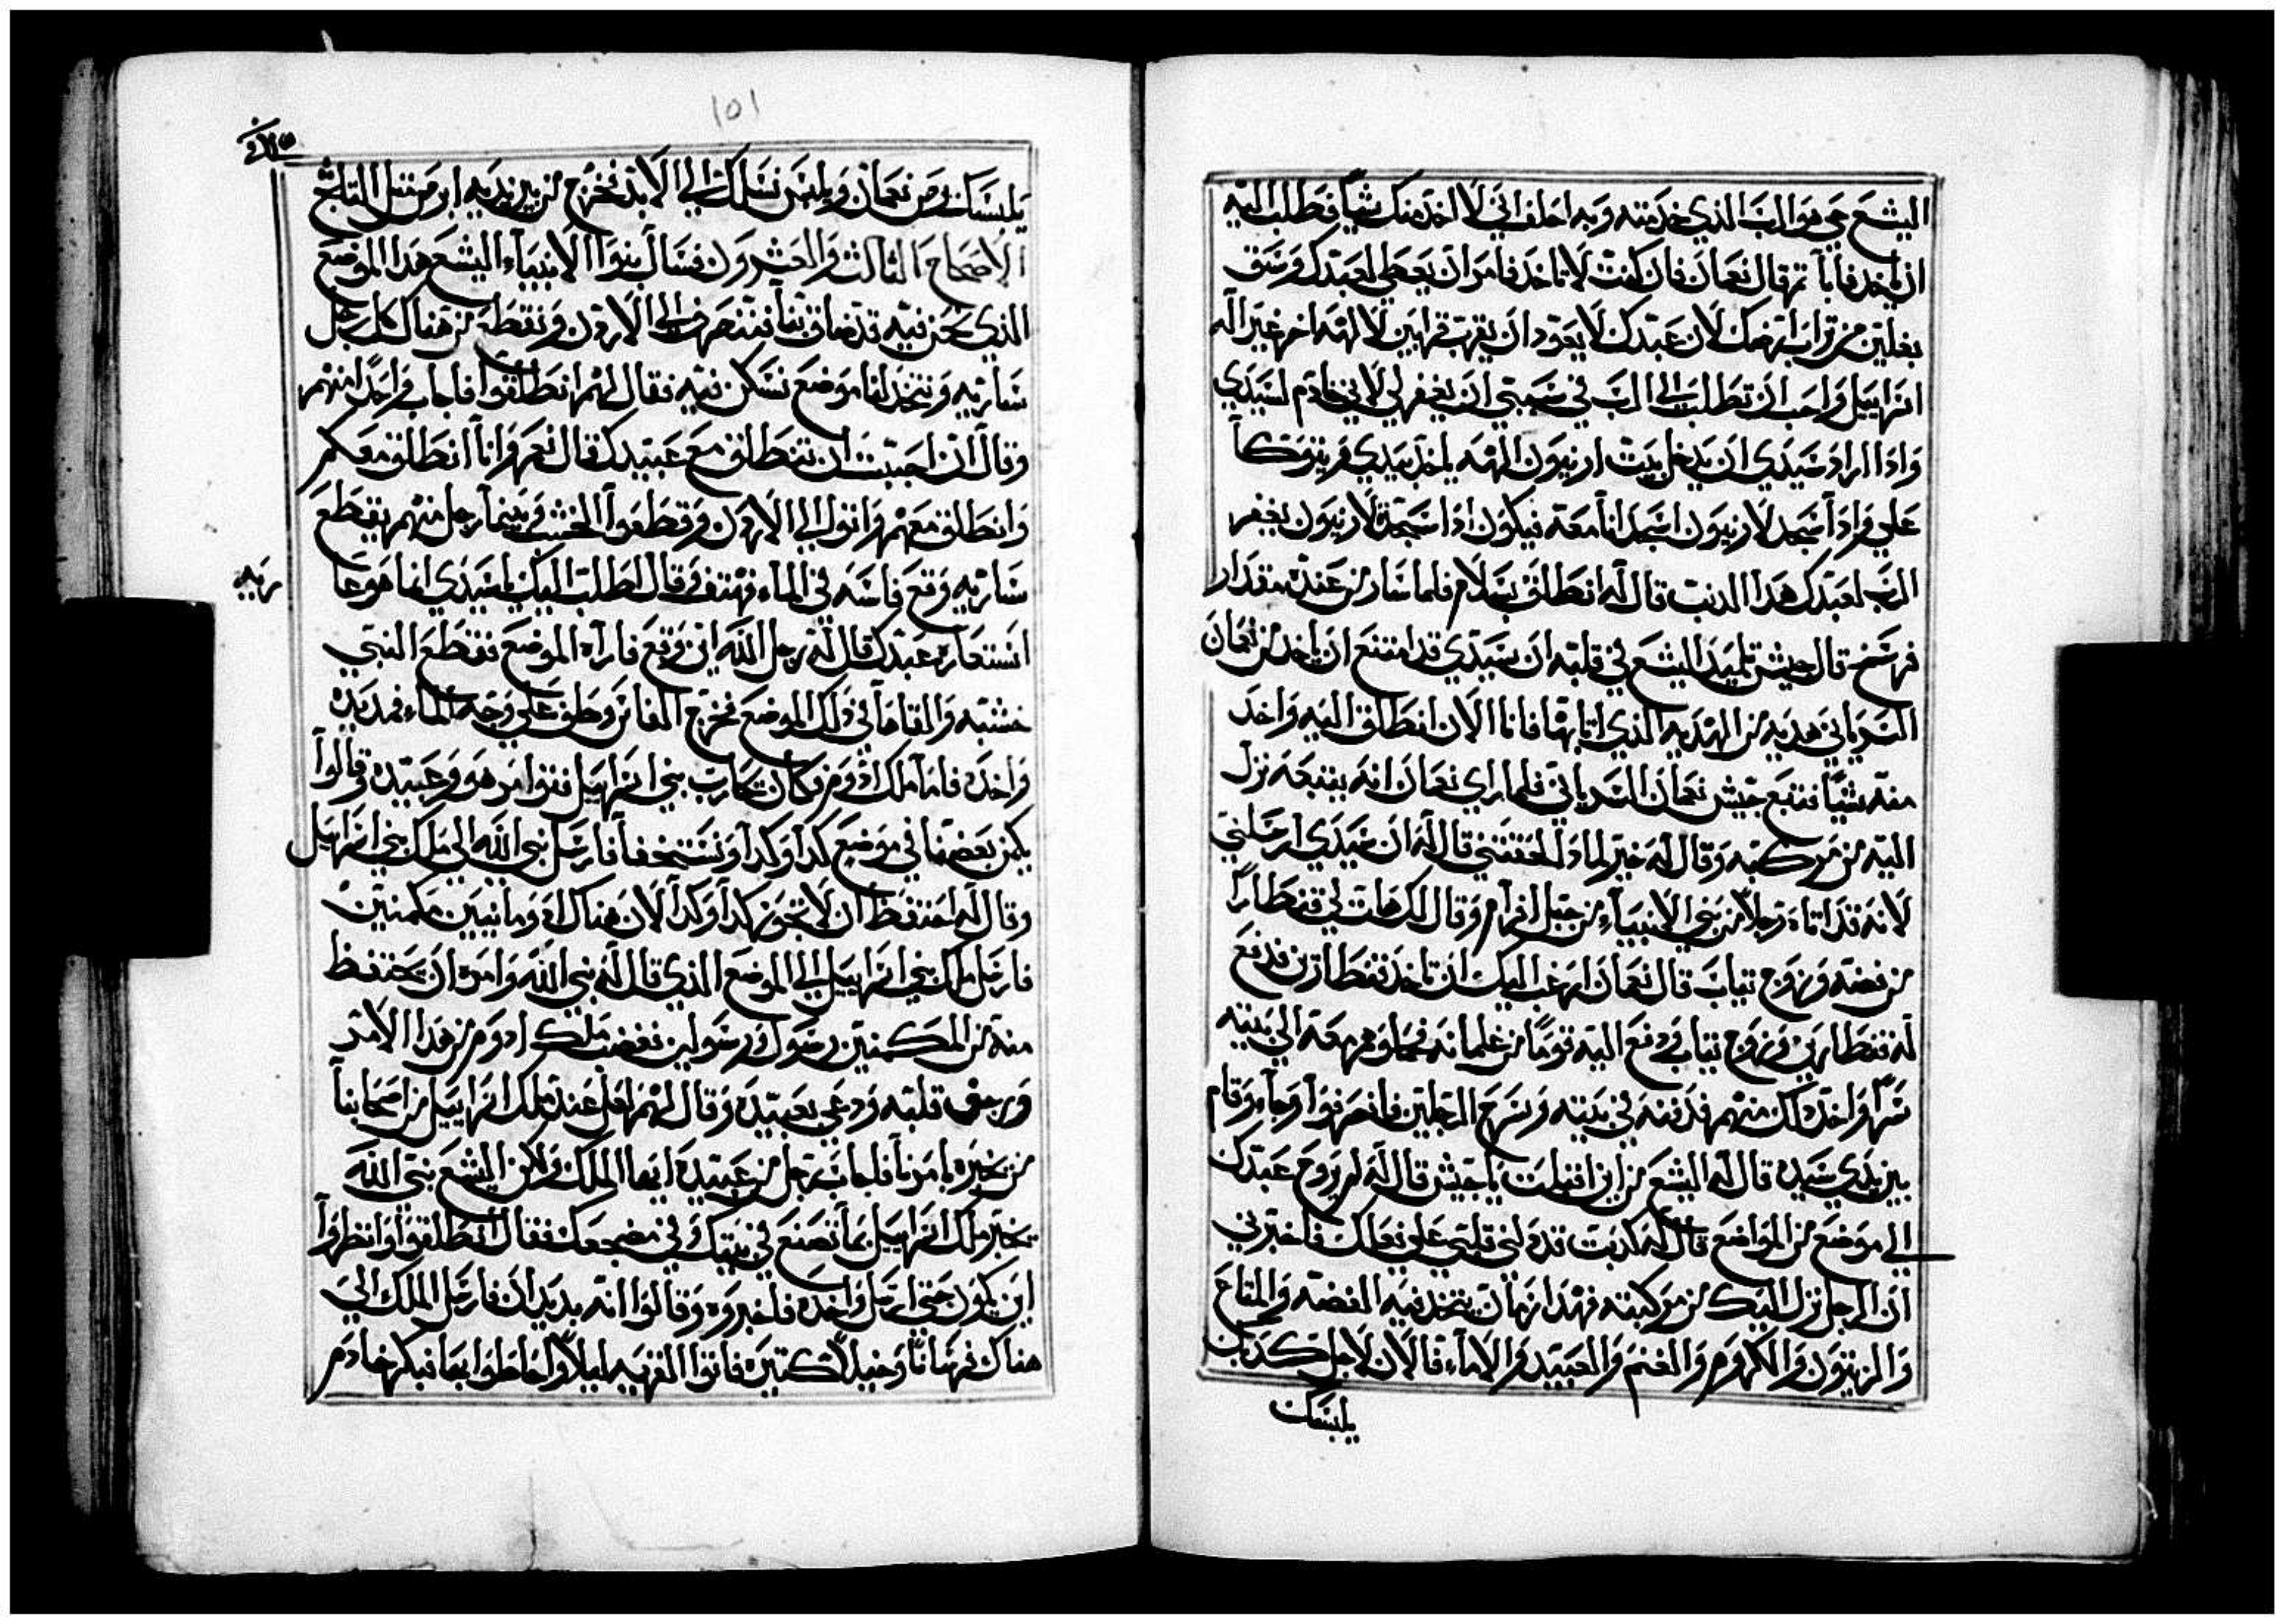 اليشع حي هو الرب الذي خدمته وبه احلف اني لا اخذ منك شيا فطلب اليه
ان ياخد فابا تم قال نعمان فان كنت لا تاخد فامر ان يعطي لعبدك وسق
بغلين من تراب ارضك لان عبدك لا يعود ان يقرب قرابين لالهه اخر غير اله
اسراييل واحب ان تطلب الي الرب في سببي ان يغفر لي لاني خادم لسيدي
وادا اراد سيدي ان يدخل بيت ارنيون الهه ياخد بيدي فيتوكا
علي وادا سجد لارنيون اسجد انا معه فيكون ادا سجدة لارنيون يغفر
الرب لعبدك هدا الدنب قال له انطلق بسلام فلما سار من عنده مقدار
فرسخ قال جيش تلميد اليشع في قلبه ان سيدي قد امتنع ان ياخد من نعمان
السرياني هديه من الهديه الذي اتا بها فانا الان انطلق اليه واخد
منه شيا فتبع جيش نعمان السرياني فلما راي نعمان انه يتبعه نزل
اليه من مركبه وقال له خير لمادا لحقتني قال له ان سيدي ارسلني
لانه قد اتاه رجلا من بني الانبياء من جبل افرام وقال لك هات لي قنطارا
من فضه وزوج تياب قال نعمان ارغب اليك ان تاخد قنطارين فدفع
له قنطارين وزوج تياب ودفع اليه قوما من غلمانه فحملوهم معه الي بيته
سرا واخد دلك منهم فدفنه في بيته وسرح الرجلين فانصرفوا وجاء وقام
بين يدي سيده قال له اليشع من اين اقبلت يا جيش قال له لم يروح عبدك
الي موضع من المواضع قال له كدبت قد دلني قلبي علي فعلك فاخبرني
ان الرجل نزل اليك من مركبته فهدا زمان يتخد فيه الفضه والمتاع
والزيتون والكروم والغنم والعبيد والاماء فالان لاجل كدبك
يلبسك
١٥١
يلبسك برص نعمان ويلبس نسلك الي الابد فخرج من بين يديه ابرص متل التلج
الاصحاح الثالث والعشرون فسال بنوا الانبياء اليشع هدا الموضع
الذي نحن فيه قد ضاق بنا فننصرف الي الاردن ونقطع من هناك كل رجل
ساريه ونتخد لنا موضع نسكن فيه فقال لهم انطلقوا فاجاب واحدا منهم
وقال ان احببت ان تنطلق مع عبيدك قال نعم وانا انطلق معكم
وانطلق معهم واتوا الي الاردن وقطعوا الخشب وبينما رجل منهم يقطع
ساريه وقع فاسه في الماء فهتف وقال اطلب اليك يا سيدي انما هو عا
ريه
استعاره عبدك قال له رجل الله اين وقع فاراه الموضع فقطع النبي
خشبه والقاها في دلك الموضع فخرج الفاس وطف علي وجه الماء فمد يده
واخده فاما ملك ادوم فكان يحارب بني اسراييل فتوامر هو وعبيده وقالوا
يكمن بعضنا في موضع كدا وكدا ونستخفا فارسل نبي الله الي ملك بني اسراييل
وقال له احتفظ ان لا تجوز كدا وكدا لان هناك ادومانيين مكمنين
فارسل ملك بني اسراييل الي الموضع الذي قال له نبي الله وامره ان يحتفظ
منه من المكمنين رسول ورسولين فغضب ملك ادوم من هدا الامر
ورجف قلبه ودعي بعبيده وقال لهم اهل عند ملك اسراييل من اصحابنا
من يخبره بامرنا فاجاب رجل من عبيده ايها الملك ولاكن اليشع نبي الله
يخبر ملك اسراييل بما تصنع في بيتك وفي مضجعك فقال انطلقوا وانظروا
اين يكون حتي ارسل واخده فاخبروه وقالوا انه بديدان فارسل الملك الي
هناك فرسانا وخيلا كتيره فاتوا القريه ليلا واحاطوا بها فبكر خادم